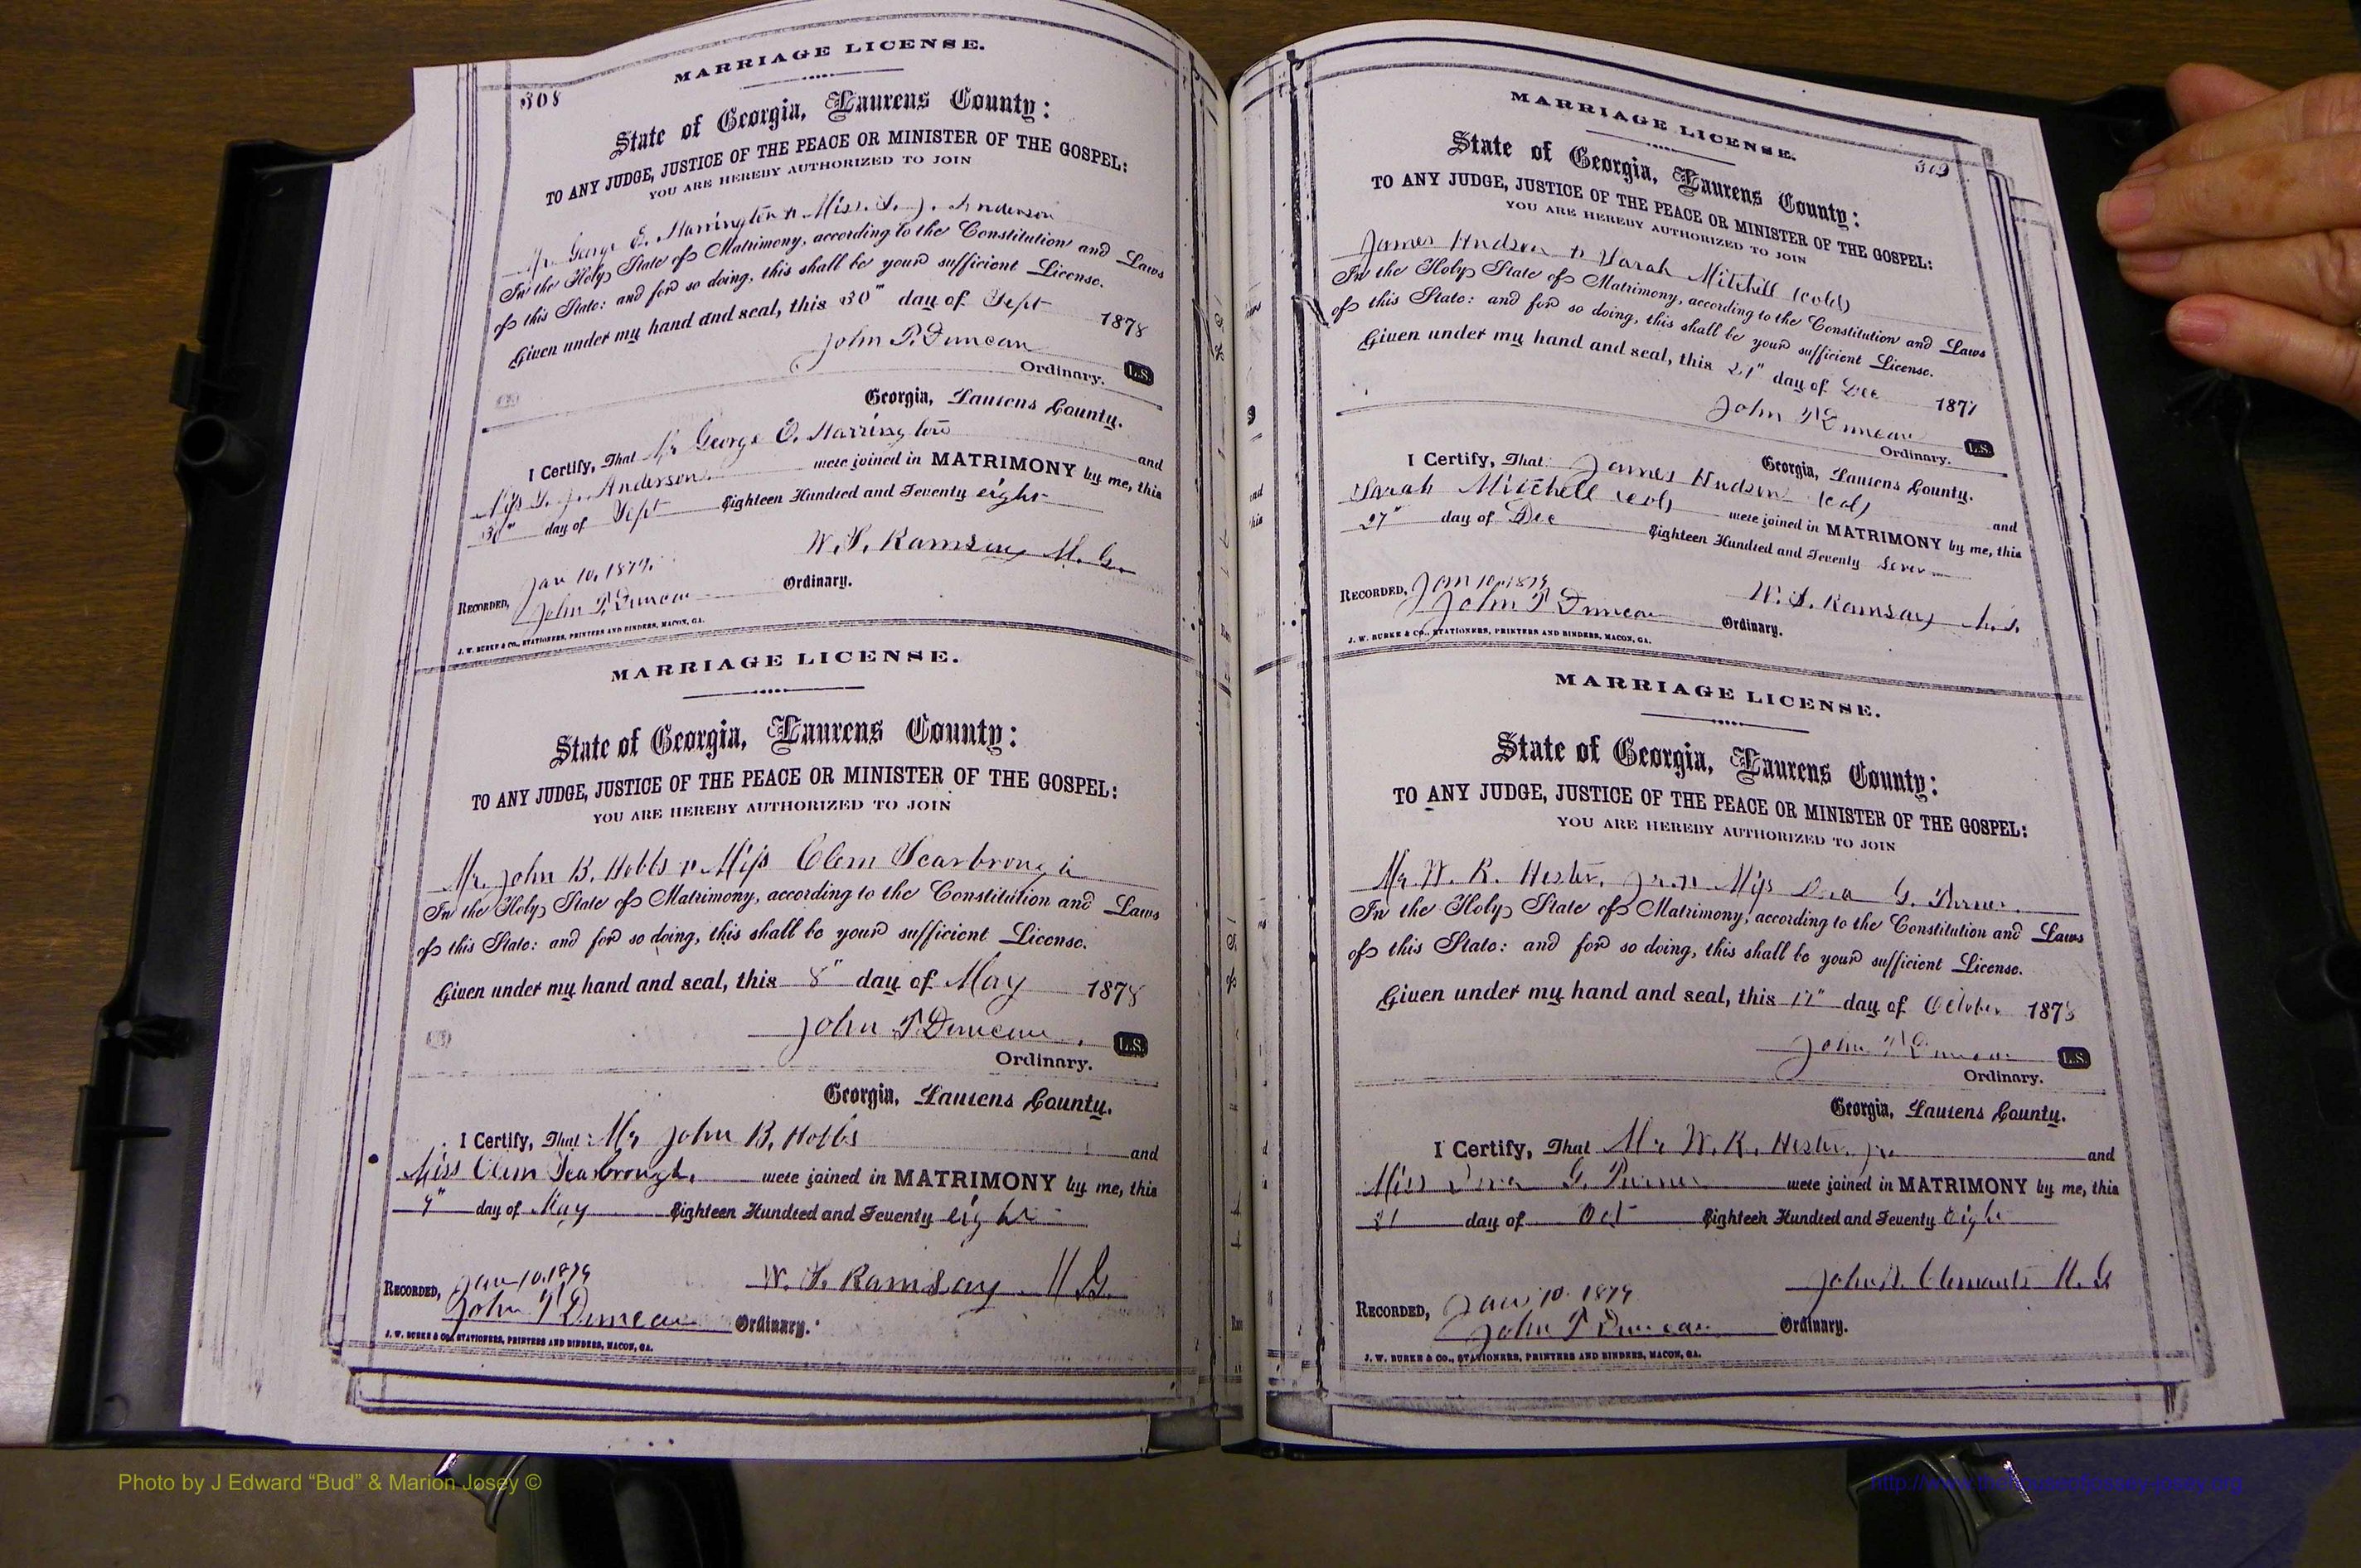 308
MARRIAGE LICENSE.
State of Georgia, Laurens County:
TO ANY JUDGE, JUSTICE OF THE PEACE OR MINISTER OF THE GOSPEL:
YOU ARE HEREBY AUTHORIZED TO JOIN
Mr. George E. Harrington & Miss. Anderson
In the Holy State of Matrimony, according to the Constitution and Laws
of this State: and for so doing, this shall be your sufficient License.
Given under my hand and seal, this 30" day of Sept 1878
John T. Duncan
Ordinary. L.S.
Georgia, Laurens County.
I Certify, That Mr George E. Harrington and
Miss Anderson. were joined in MATRIMONY by me, this
30" day of Sept Eighteen Hundred and Seventy eight
W. S. Ramsay M. G.
Jan 10, 1879.
RECORDED, John T. Duncan Ordinary.
J. W. BURKE & CO., STATIONERS, PRINTERS AND BINDERS, MACON, GA.
MARRIAGE LICENSE.
State of Georgia, Laurens County:
TO ANY JUDGE, JUSTICE OF THE PEACE OR MINISTER OF THE GOSPEL:
YOU ARE HEREBY AUTHORIZED TO JOIN
Mr. John B. Hobbs & Miss Clem Scarbrough
In the Holy State of Matrimony, according to the Constitution and Laws
of this State: and for so doing, this shall be your sufficient License.
Given under my hand and seal, this 8" day of May 1878
John T Duncan
Ordinary. L.S.
Georgia, Laurens County.
I Certify, That Mr John B. Hobbs and
Miss Clem Scarbrough. were joined in MATRIMONY by me, this
9" day of May Eighteen Hundred and Seventy eight
W. S. Ramsay M.G.
RECORDED, Jan 10, 1879
John T Duncan Ordinary.
J. W. BURKE & CO., STATIONERS, PRINTERS AND BINDERS, MACON, GA.
309
MARRIAGE LICENSE.
State of Georgia, Laurens County:
TO ANY JUDGE, JUSTICE OF THE PEACE OR MINISTER OF THE GOSPEL:
YOU ARE HEREBY AUTHORIZED TO JOIN
James Hudson & Sarah Mitchell (cold)
In the Holy State of Matrimony, according to the Constitution and Laws
of this State: and for so doing, this shall be your sufficient License.
Given under my hand and seal, this day of Dec 1877
John T Duncan
Ordinary. L.S.
Georgia, Laurens County.
I Certify, That James Hudson (col) and
Sarah Mitchell (col) were joined in MATRIMONY by me, this
27" day of Dec Eighteen Hundred and Seventy Seven
W. S. Ramsay
RECORDED, Jan 10, 1879
John T Duncan Ordinary.
J. W. BURKE & CO., STATIONERS, PRINTERS AND BINDERS, MACON, GA.
MARRIAGE LICENSE.
State of Georgia, Laurens County:
TO ANY JUDGE, JUSTICE OF THE PEACE OR MINISTER OF THE GOSPEL:
YOU ARE HEREBY AUTHORIZED TO JOIN
Mr. W. R. Hester, Jr. & Miss G.
In the Holy State of Matrimony, according to the Constitution and Laws
of this State: and for so doing, this shall be your sufficient License.
Given under my hand and seal, this day of October 1878
John T Duncan
Ordinary. L.S.
Georgia, Laurens County.
I Certify, That Mr W. R. Hester, Jr. and
Miss G. were joined in MATRIMONY by me, this
31 day of Oct Eighteen Hundred and Seventy Eight
John Clements M. G
RECORDED, Jan 10. 1879
John T Duncan Ordinary.
J. W. BURKE & CO., STATIONERS, PRINTERS AND BINDERS, MACON, GA.
Photo by J Edward “Bud” & Marion Josey ©